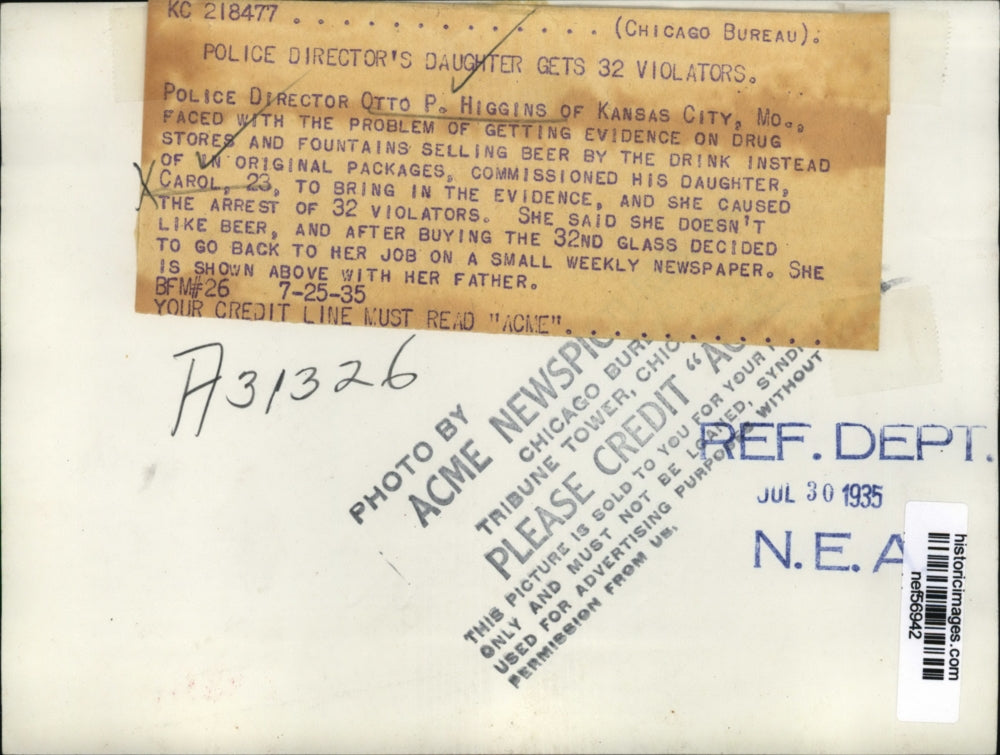 KC 218477 . . . . . . . . . . . . (CHICAGO BUREAU).
POLICE DIRECTOR'S DAUGHTER GETS 32 VIOLATORS.
POLICE DIRECTOR OTTO P. HIGGINS OF KANSAS CITY, MO.,
FACED WITH THE PROBLEM OF GETTING EVIDENCE ON DRUG
STORES AND FOUNTAINS SELLING BEER BY THE DRINK INSTEAD
OF IN ORIGINAL PACKAGES, COMMISSIONED HIS DAUGHTER,
CAROL, 23, TO BRING IN THE EVIDENCE, AND SHE CAUSED
THE ARREST OF 32 VIOLATORS. SHE SAID SHE DOESN'T
LIKE BEER, AND AFTER BUYING THE 32ND GLASS DECIDED
TO GO BACK TO HER JOB ON A SMALL WEEKLY NEWSPAPER. SHE
IS SHOWN ABOVE WITH HER FATHER.
BFM#26 7-25-35
YOUR CREDIT LINE MUST READ "ACME". . . . . . . . .
A31326
PHOTO BY
ACME NEWSPIC
CHICAGO BUR
TRIBUNE TOWER, CHIC
PLEASE CREDIT "AC
THIS PICTURE IS SOLD TO YOU FOR YOUR
ONLY AND MUST NOT BE LOANED, SYNDI
USED FOR ADVERTISING PURPOSES WITHOUT
PERMISSION FROM US.
REF. DEPT.
JUL 30 1935
N.E.A
historicimages.com
nef56942